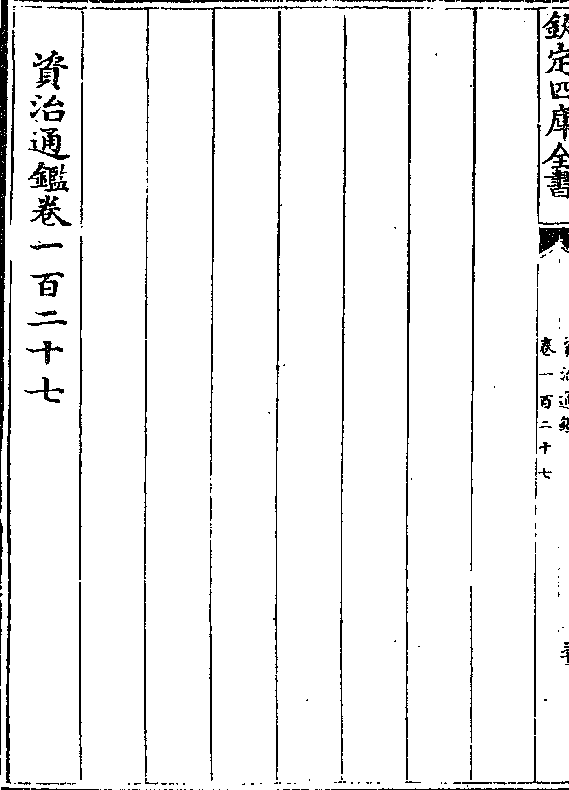 欽定四庫全書
資治通鑑
卷一百二十七
資治通鑑卷一百二十七